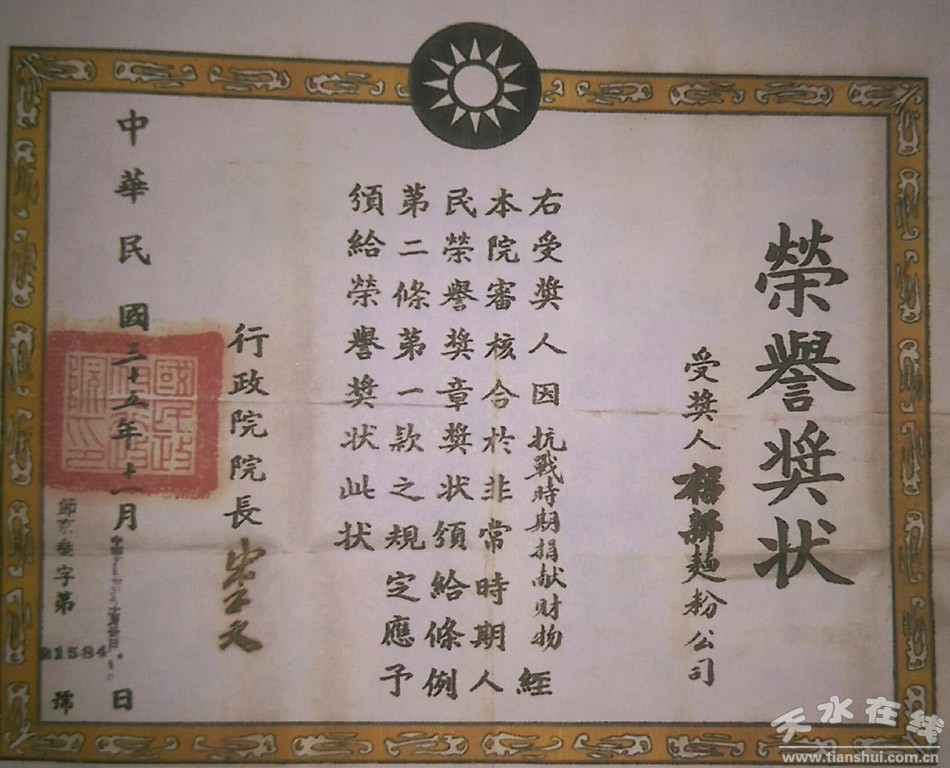 榮譽奬状
受奬人福新麺粉公司
右受奬人因抗戰時期捐献财物經
本院審核合於非常時期人
民榮譽奬章奬状頒給條例
第二條第一款之規定應予
頒給榮譽奬状此状
行政院院長宋子文
中華民國三十五年十一月 日
節京 字第21584號
天水在线
www.tianshui.com.cn